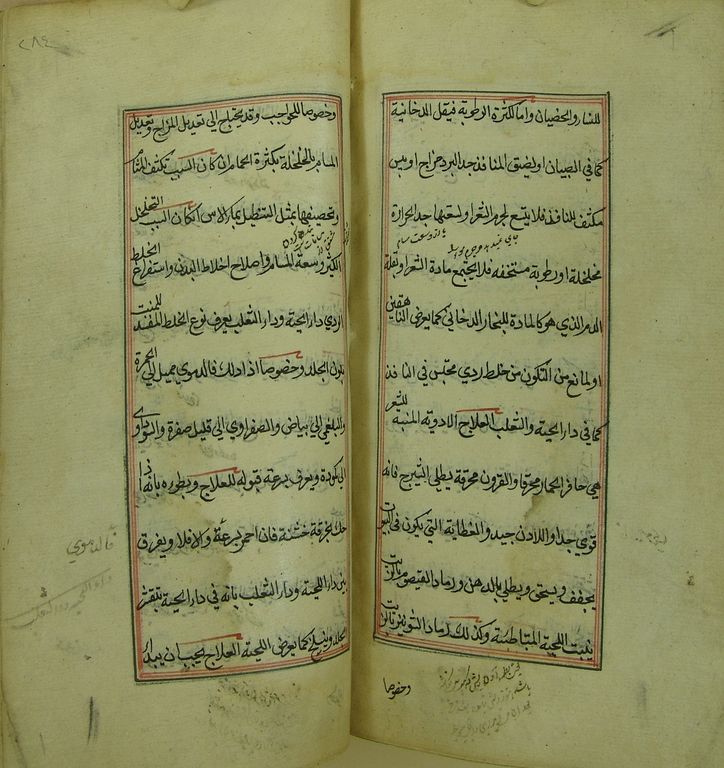 للنساء والخصيان واما لكثرة الرطوبة فيقل الدخانية
كما في الصبيان او لضيق المنافذ جد البرد مزاج او يبس
مكثف للمنافذ فلا يتسع لجرم الشعر او لسعتها جد الحرارة
مخلخلة او رطوبة مسترخيه فلا يجتمع مادة الشعر او لقلة
الدم الذي هو كالمادة للبخار الدخاني كما يعرض للناقهين
او لمانع من التكون من خلط ردي محتبس في المنافذ
كما في داء الحية والثعلب العلاج الادوية المنبتة للشعر
هي حافر الحمار محرقا والقرون محرقة يطلى بالشيرج فانه
قوي جدا واللادن جيد والعظاية التي يكون في البيوت
يجفف ويسحق ويطلى بالدهن ورماد القيصوم بالزيت
ينبت اللحية المتباطئة وكذلك رماد الشونيز بالزيت
وخصوصا
٢٨٤
وخصوصا للحواجب وقد يحتاج الى تعديل المزاج وتعديل
المسام بالخلخلة بكثرة الحمام ان كان السبب تكثف المسام
وتحصيفها بمثل التنطيل بماء الاس ان كان السبب التخلخل
الكثير وسعة المسام واصلاح اخلاط البدن واستفراغ الخلط
الردي داء الحية وداء الثعلب يعرف نوع الخلط المفسد للمنبت
بلون الجلد وخصوصا اذا دلك فالدموي يميل الى الحمرة
والبلغمي الى بياض والصفراوي الى قليل صفرة والسوداوي
الى كمودة ويعرف سرعة قبوله للعلاج وبطؤه بانه اذا
دلك بخرقة خشنة فان احمر بسرعة والا فلا ويفرق
بين داء الحية وداء الثعلب بانه في داء الحية يتقشر
الجلد وينسلخ كما يعرض للحية العلاج يجب ان يبدا
فالدموي